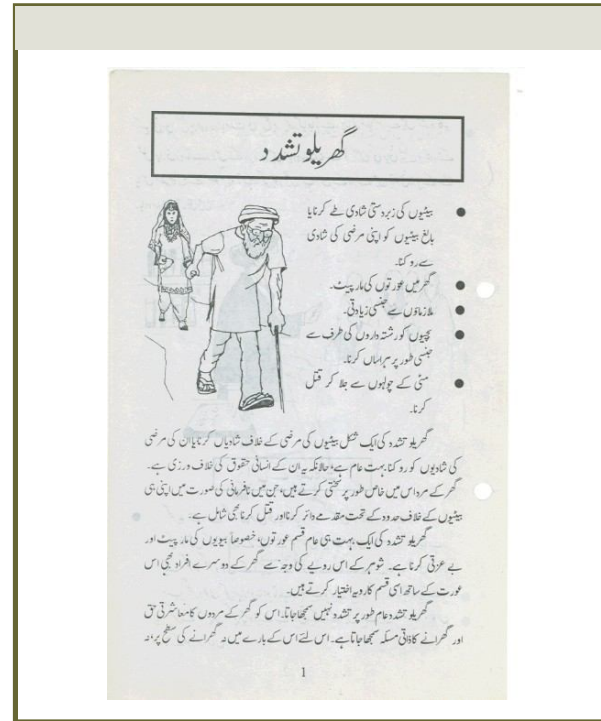 گھریلو تشدد
● بیٹیوں کی زبردستی شادی طے کرنا یا
بالغ بیٹیوں کو اپنی مرضی کی شادی
سے روکنا۔
● گھر میں عورتوں کی مار پیٹ۔
● ملازماؤں سے جنسی زیادتی۔
● بچیوں کو رشتہ داروں کی طرف سے
جنسی طور پر ہراساں کرنا۔
● مٹی کے چولہوں سے جلا کر قتل
کرنا۔
گھریلو تشدد کی ایک شکل بیٹیوں کی مرضی کے خلاف شادیاں کرنا یا ان کی مرضی
کی شادیوں کو روکنا بہت عام ہے، حالانکہ یہ ان کے انسانی حقوق کی خلاف ورزی ہے۔
گھر کے مرد اس میں خاص طور پر سختی کرتے ہیں، جن میں نافرمانی کی صورت میں اپنی ہی
بیٹیوں کے خلاف حدود کے تحت مقدمے دائر کرنا اور قتل کرنا بھی شامل ہے۔
گھریلو تشدد کی ایک بہت ہی عام قسم عورتوں، خصوصاً بیویوں کی مار پیٹ اور
بے عزتی کرنا ہے۔ شوہر کے اس رویے کی وجہ سے گھر کے دوسرے افراد بھی اس
عورت کے ساتھ اسی قسم کا رویہ اختیار کرتے ہیں۔
گھریلو تشدد عام طور پر تشدد نہیں سمجھا جاتا۔ اس کو گھر کے مردوں کا معاشرتی حق
اور گھرانے کا ذاتی مسئلہ سمجھا جاتا ہے۔ اس لئے اس کے بارے میں نہ گھرانے کی سطح پر، نہ
1